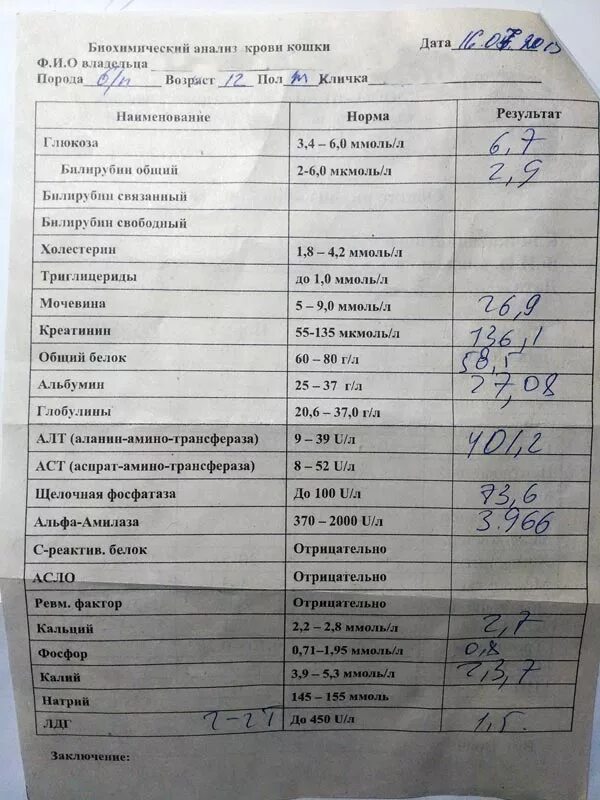 Биохимический анализ крови кошки Дата 16.07.2013
Ф.И.О владельца
Порода б/п Возраст 12 Пол m Кличка
Наименование Норма Результат
Глюкоза 3,4 – 6,0 ммоль/л 6,7
Билирубин общий 2-6,0 мкмоль/л 2,9
Билирубин связанный
Билирубин свободный
Холестерин 1,8 – 4,2 ммоль/л
Триглицериды до 1,0 ммоль/л
Мочевина 5 – 9,0 ммоль/л 26,9
Креатинин 55-135 мкмоль/л 136,1
Общий белок 60 – 80 г/л 58,5
Альбумин 25 – 37 г/л 27,08
Глобулины 20,6 – 37,0 г/л
АЛТ (аланин-амино-трансфераза) 9 – 39 U/л 401,2
АСТ (аспрат-амино-трансфераза) 8 – 52 U/л
Щелочная фосфатаза До 100 U/л 73,6
Альфа-Амилаза 370 – 2000 U/л 3.966
С-реактив. белок Отрицательно
АСЛО Отрицательно
Ревм. фактор Отрицательно
Кальций 2,2 – 2,8 ммоль/л 2,7
Фосфор 0,71–1,95 ммоль/л 0,8
Калий 3,9 – 5,3 ммоль/л 2,3,7
Натрий 145 – 155 ммоль
ЛДГ Г-ГТ До 450 U/л 1,5.
Заключение: